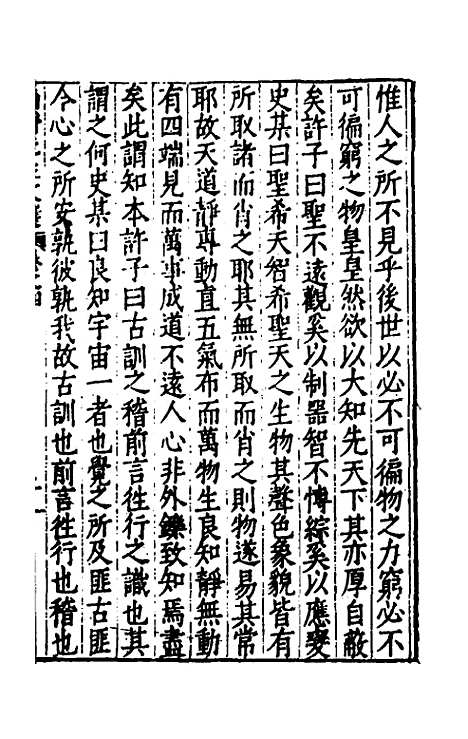 惟人之所不見乎後世以必不可徧物之力窮必不
可徧窮之物皇皇然欲以大知先天下其亦厚自敝
矣許子曰聖不遠觀奚以制器智不愽綜奚以應変
史某曰聖希天智希聖天之生物其聲色象貌皆有
所取諸而肖之耶其無所取而肖之則物遂易其常
耶故天道靜專動直五氣布而萬物生良知靜無動
有四端見而萬事成道不遠人心非外鑠致知焉盡
矣此謂知本許子曰古訓之稽前言徃行之識也其
謂之何史某曰良知宇宙一者也覺之所及匪古匪
今心之所安孰彼孰我故古訓也前言徃行也稽也